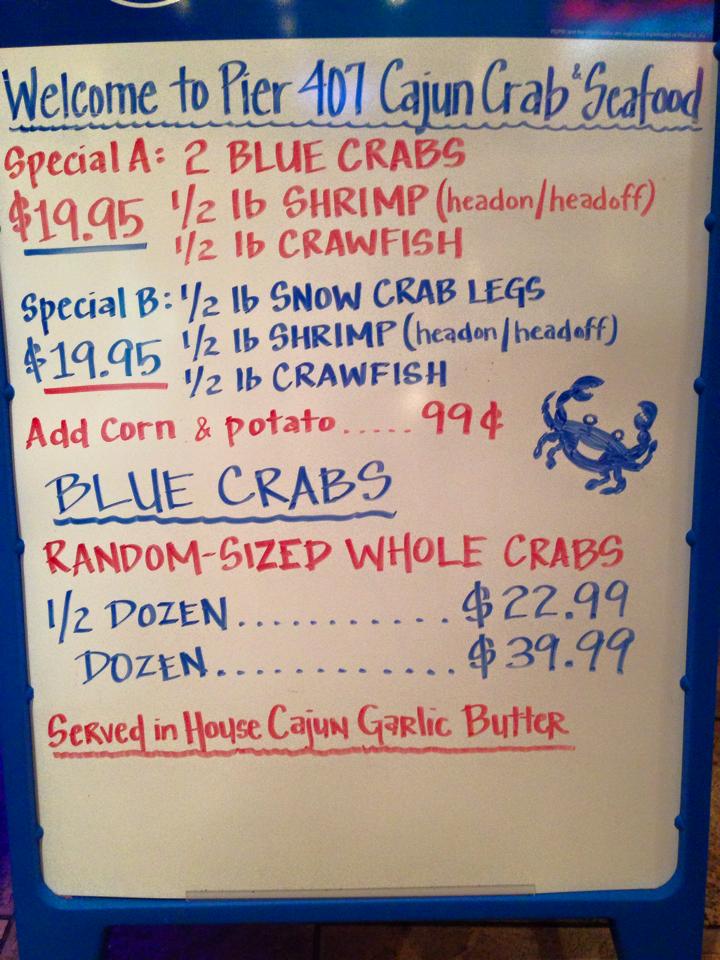 Welcome to Pier 407 Cajun Crab & Seafood
Special A: 2 BLUE CRABS
$19.95 1/2 lb SHRIMP (headon/headoff)
1/2 lb CRAWFISH
Special B: 1/2 lb SNOW CRAB LEGS
$19.95 1/2 lb SHRIMP (headon/headoff)
1/2 lb CRAWFISH
Add Corn & potato ..... 99¢
BLUE CRABS
RANDOM-SIZED WHOLE CRABS
1/2 DOZEN ........... $22.99
DOZEN ............. $39.99
Served in House Cajun Garlic Butter